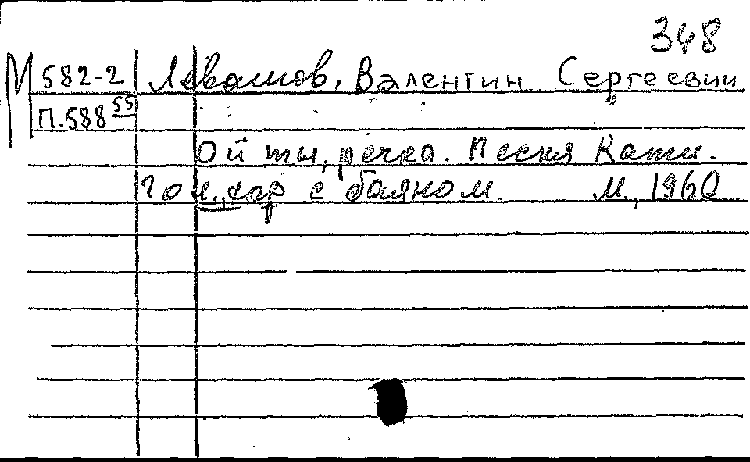 348
М 582-2 Левашов, Валентин Сергеевич
П.588 55
Ой ты, речка. Песня Кати.
Гол., хор с баяном. М., 1960